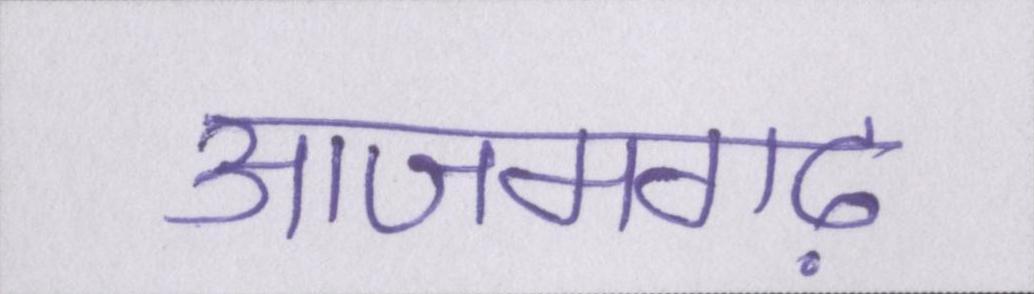 आजमगढ़